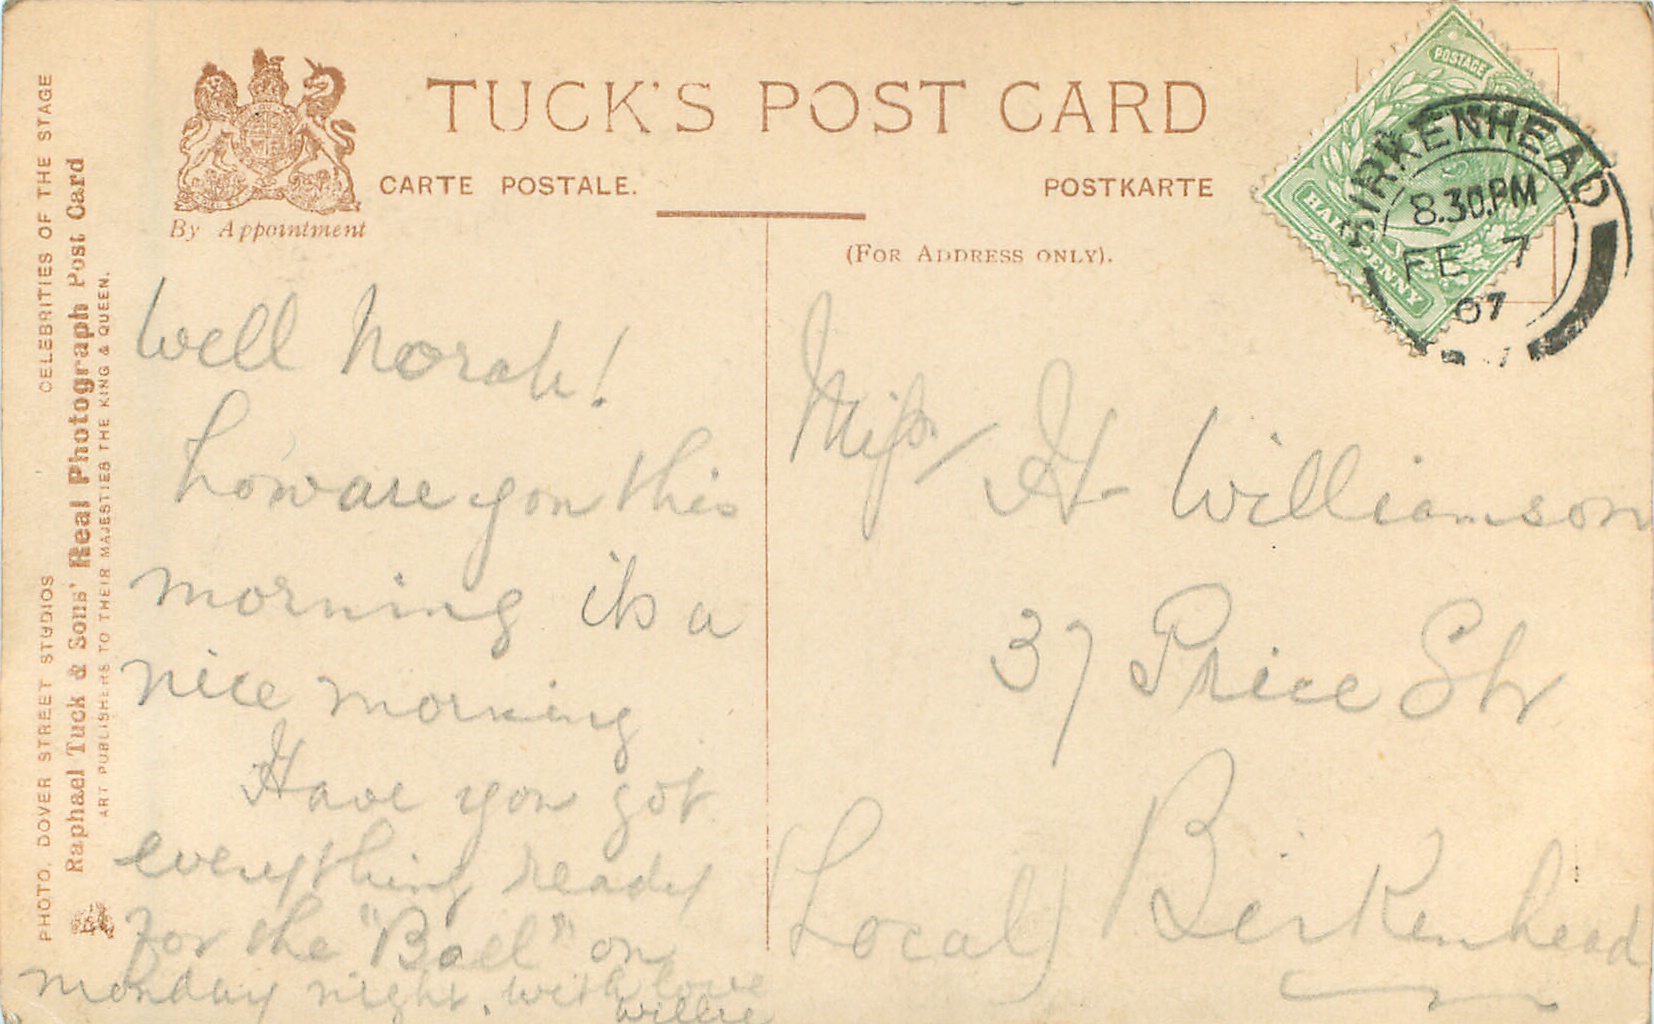 TUCK'S POST CARD
CARTE POSTALE.
POSTKARTE
By Appointment
(FOR ADDRESS ONLY).
POSTAGE
HALFPENNY
BIRKENHEAD
8.30.PM
FE 7
07
PHOTO. DOVER STREET STUDIOS CELEBRITIES OF THE STAGE
Raphael Tuck & Sons' Real Photograph Post Card
ART PUBLISHERS TO THEIR MAJESTIES THE KING & QUEEN.
Well Norah!
how are you this
morning its a
nice morning
Have you got
everything ready
for the "Ball" on
monday night. with love
Willie
Miss H Williamson
37 Price Str
(Local) Birkenhead